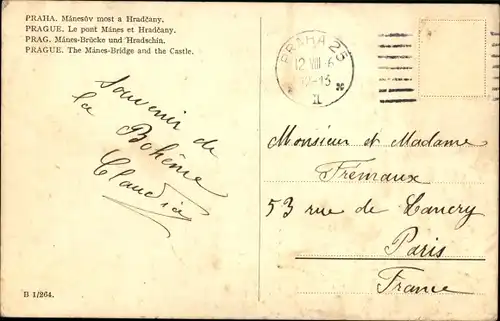 PRAHA. Mánesův most a Hradčany.
PRAGUE. Le pont Mánes et Hradčany.
PRAG. Mánes-Brücke und Hradschin.
PRAGUE. The Mánes-Bridge and the Castle.
PRAHA 25
12 VIII 6
12-13
II
Souvenir de
la Bohême
Claudia
Monsieur et Madame
Frémaux
53 rue de Lancry
Paris
France
B 1/264.